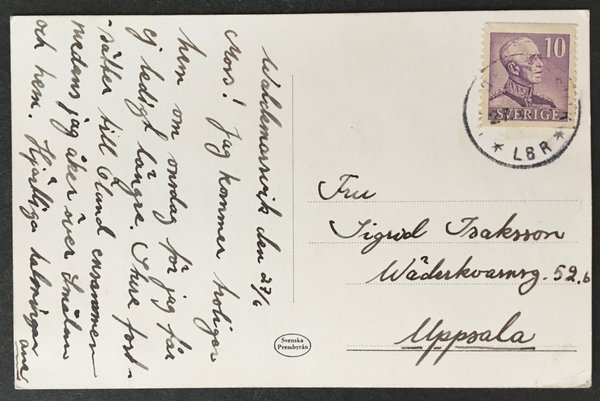 Waldemarsvik den 27/6
Mors! Jag kommer troligen
hem om onsdag för jag får
ej ledigt längre. Sture fort-
sätter till Öland ensammen
medans jag åker över Småland
och hem. Hjärtliga hälsningar
10
SVERIGE
* LBR *
Fru
Sigrid Isaksson
Wäderkvarnsg. 52.b
Uppsala
Svenska
Pressbyrån